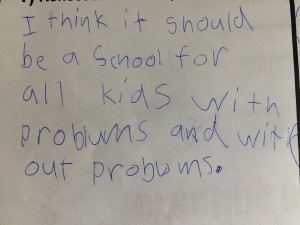 I think it should
be a School for
all kids with
problums and with
out probums.